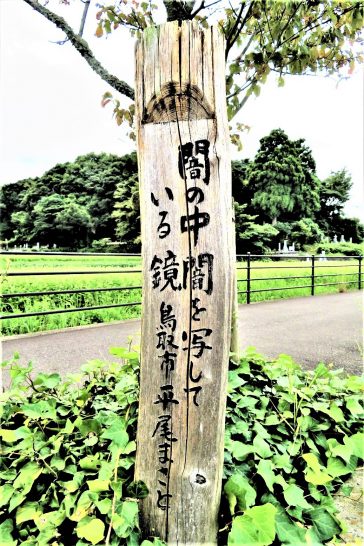 闇の中闇を写して
いる鏡
鳥取市 平尾まこと